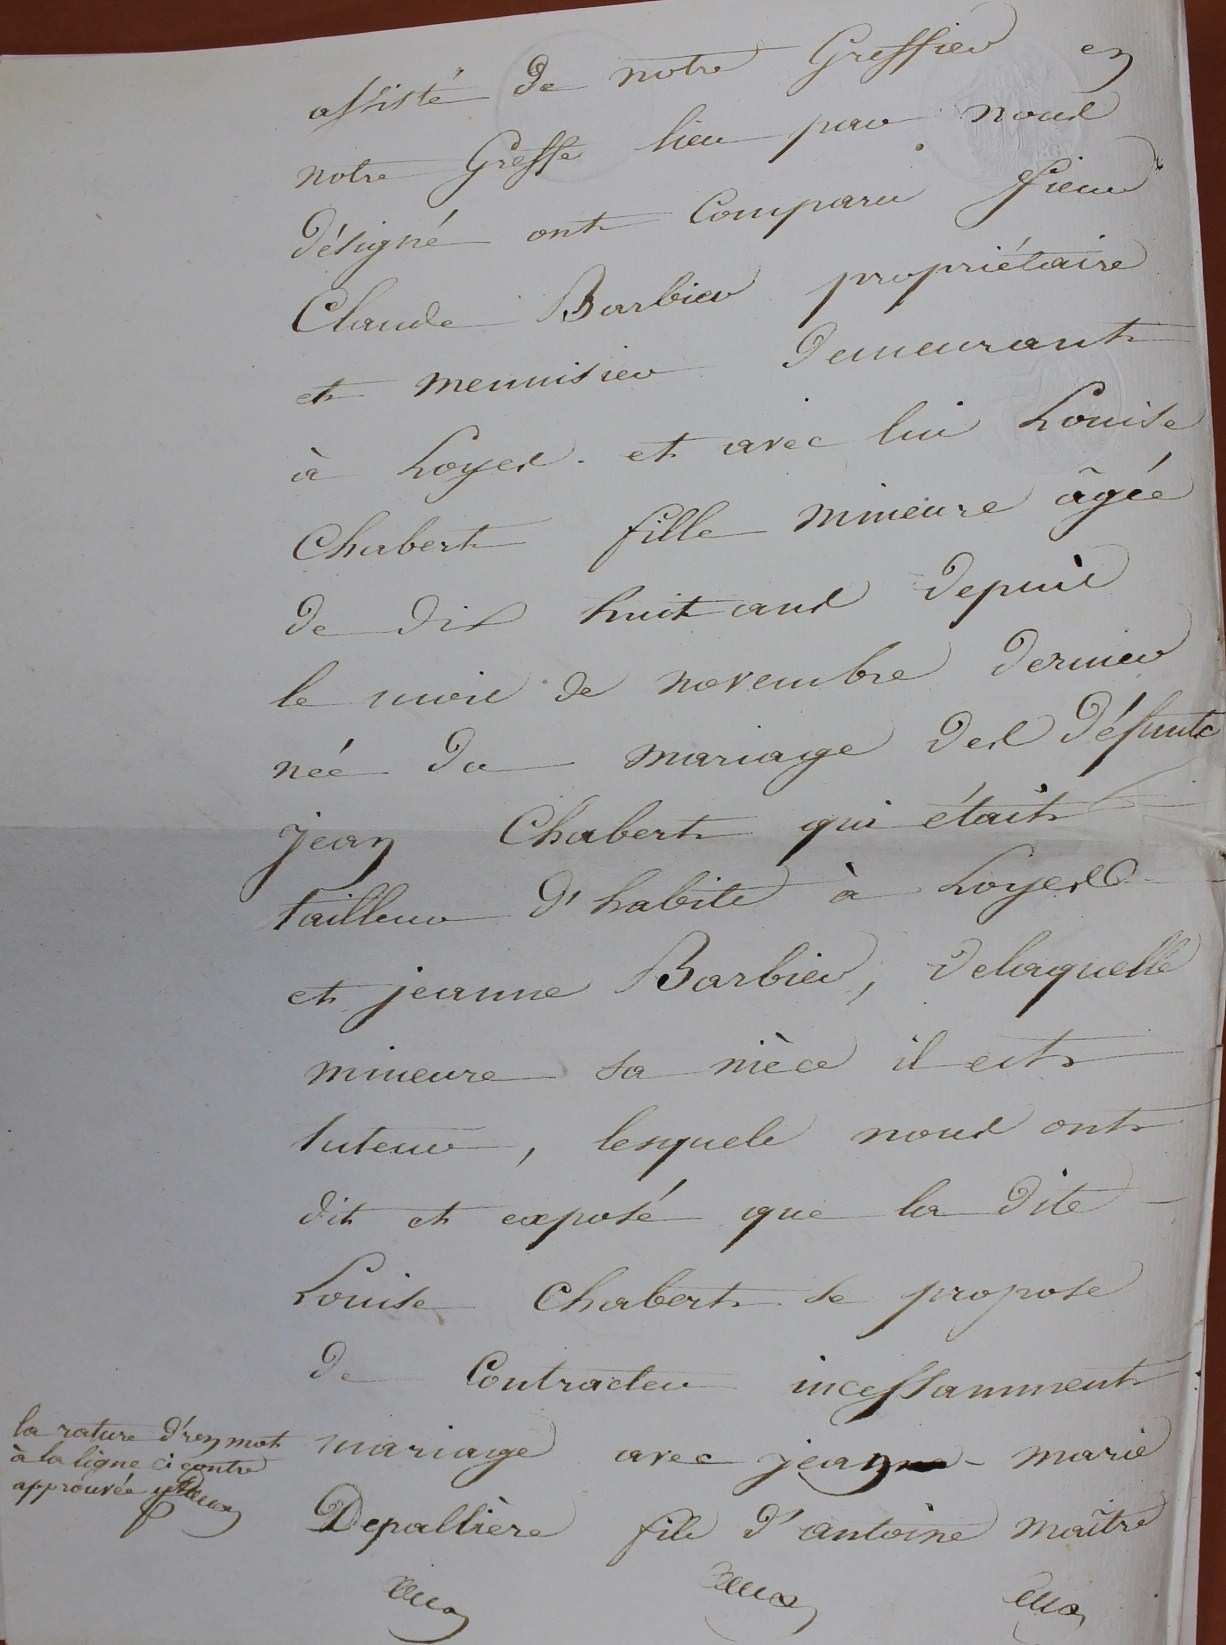 assisté de notre Greffier en
notre Greffe lieu par nous
désigné ont Comparu Sieur
Claude Barbier propriétaire
et menuisier demeurant
à Loyes. et avec lui Louise
Chabert fille mineure âgée
de dix huit ans depuis
le mois de novembre dernier
née du mariage des défunts
jean Chabert qui était
tailleur d'habits à Loyes
et jeanne Barbier, delaquelle
mineure sa nièce il est
tuteur, lesquels nous ont
dit et exposé que la dite
Louise Chabert se propose
de Contracter incessamment
mariage avec jean marie
Depallière fils d'antoine maître
la rature d'un mot
à la ligne ci contre
approuvée